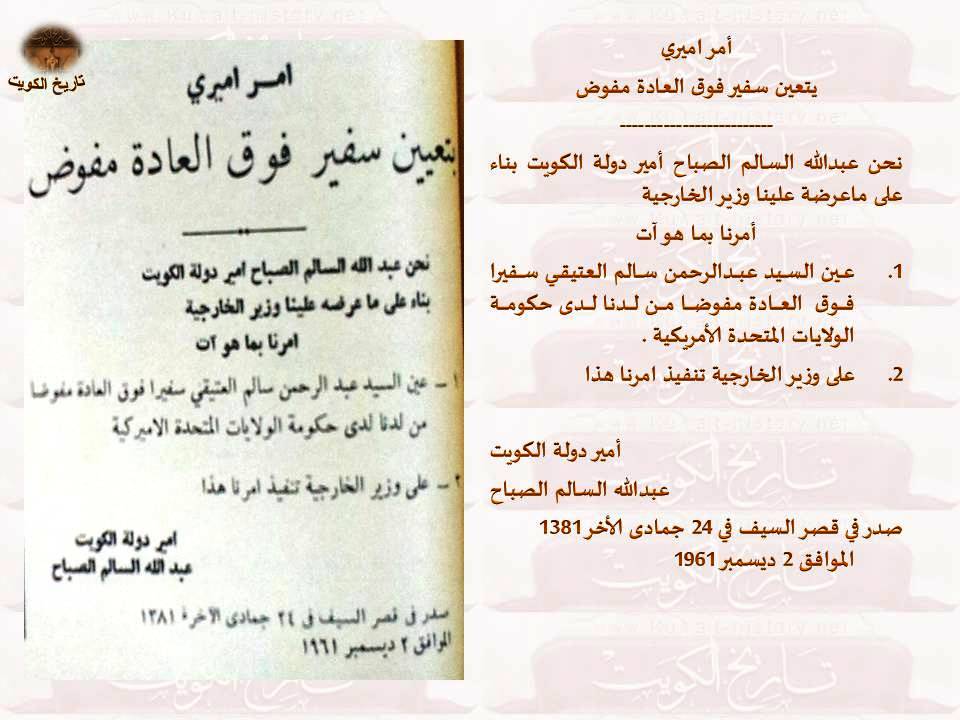 تاريخ الكويت
أمر اميري
يتعين سفير فوق العادة مفوض
-------------------------
نحن عبدالله السالم الصباح أمير دولة الكويت بناء
على ماعرضة علينا وزير الخارجية
أمرنا بما هو آت
1. عين السيد عبدالرحمن سالم العتيقي سفيرا
فوق العادة مفوضا من لدنا لدى حكومة
الولايات المتحدة الأمريكية .
2. على وزير الخارجية تنفيذ امرنا هذا
أمير دولة الكويت
عبدالله السالم الصباح
صدر في قصر السيف في 24 جمادى الأخر 1381
الموافق 2 ديسمبر 1961
امر اميري
بتعيين سفير فوق العادة مفوض
نحن عبد الله السالم الصباح امير دولة الكويت
بناء على ما عرضه علينا وزير الخارجية
امرنا بما هو آت
١ – عين السيد عبد الرحمن سالم العتيقي سفيرا فوق العادة مفوضا
من لدنا لدى حكومة الولايات المتحدة الاميركية
٢ – على وزير الخارجية تنفيذ امرنا هذا
امير دولة الكويت
عبد الله السالم الصباح
صدر في قصر السيف في ٢٤ جمادى الآخرة ١٣٨١
الموافق ٢ ديسمبر ١٩٦١